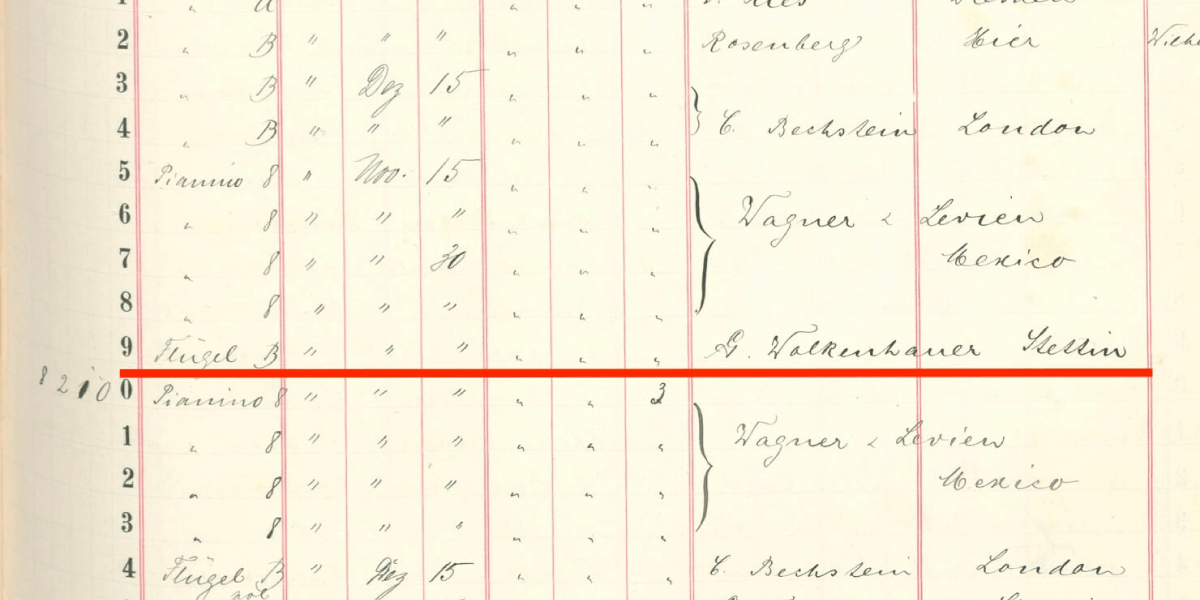 2 " B " " " " " " Rosenberg Hier
3 " B " Dez 15 " " "
4 " B " " " " " " C. Bechstein London
5 Pianino 8 " Nov. 15 " " "
6 " 8 " " " " " " Wagner & Levien
7 " 8 " " 30 " " " Mexico
8 " 8 " " " " " "
9 Flügel B " " " " " " G. Wolkenhauer Stettin
8210 0 Pianino 8 " " " " " 3
1 " 8 " " " " " " Wagner & Levien
2 " 8 " " " " " " Mexico
3 " 8 " " " " " "
4 Flügel B " Dez 15 " " " C. Bechstein London